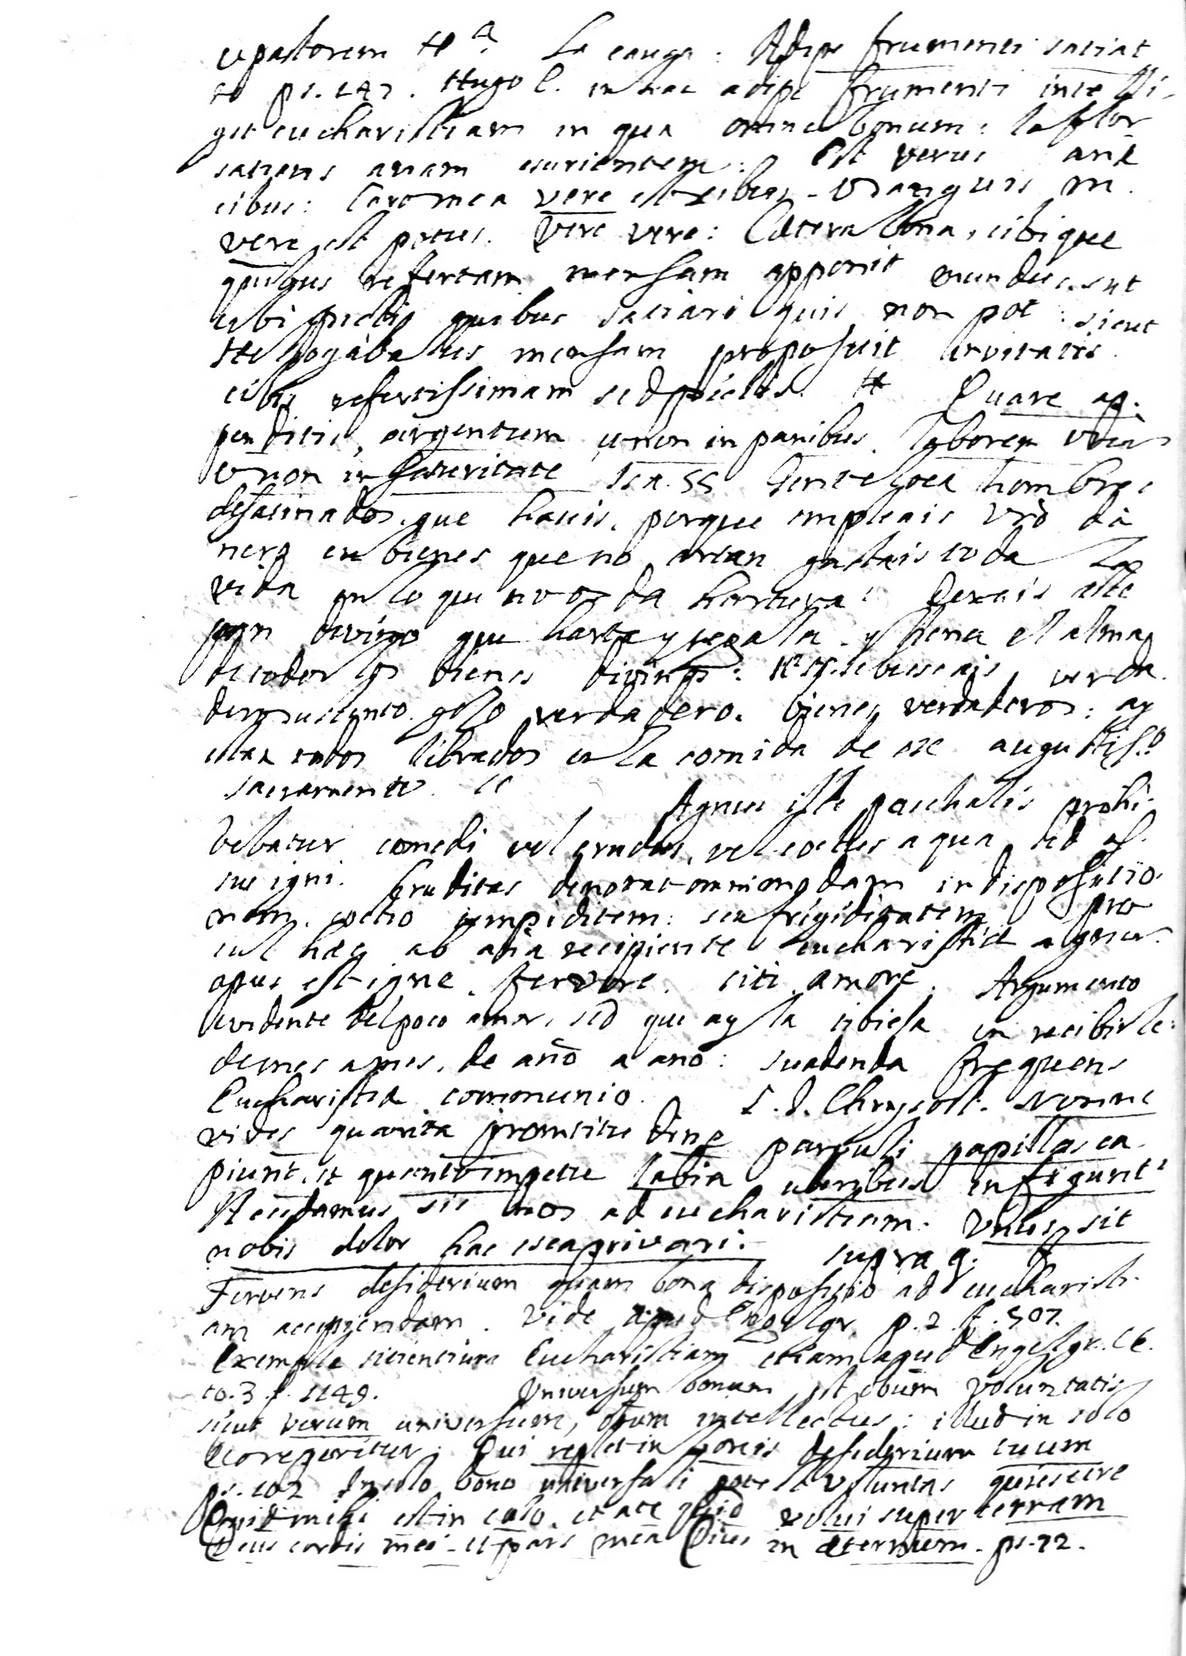 vpastorem La causa: Adipe frumenti satiat
te ps. 147. Hugo C. in hac adipe frumenti intelli-
git eucharistiam in qua omne bonum: la flor
satiens esurientem: Est verus
cibus: Caro mea vere est cibus - sanguis m.
vere est potus. Vere vere: Cætera bona, cibique
quibus refertam mensam apponit mundus sunt
cibi picti quibus satiari quis non pot: sicut
Heliogabalus mensam proposuit invitatis
cibis refertissimam sed pictis. Quare ap-
penditis argentum v non in panibus, laborem vrm
v non in saturitate Isa. 55 Gente loca hombres
desatinados, que haceis, porque empleais vrò di
nero en bienes que no artan gastais toda la
vida en lo que no os da hartura? Dexais este
pan divino que harta y regala y llena el alma
de todos los bienes divinos: si buscais verda
dero sustento, gozo verdadero, bienes verdaderos: ay
estan todos librados en la comida de ese augustiss.o
sacramento.
Agnus iste paschalis prohi-
bebatur comedi vel crudus, vel coctus aqua, sed as-
sus igni. Cruditas denotat omnimodam indispositio
nem, coctio tempiditem: seu frigiditatem pro
cul hæc ab aña recipiente eucharistiæ agnu
opus est igne, fervore, siti, amore. Argumento
evidente del poco amor, sed que ay la tibieza en recibirle
de mes a mes, de año a año: suadenda frequens
Eucharistia communio. S. J. Chrysost. Nonne
vides quanta promptitudine parvuli papillas ca-
piunt, et quanto impetu labia uberibus infigunt?
Accedamus sic nos ad eucharistiam. Unus sit
nobis dolor hac esca privari: supra q.
Fervens desiderium quam bona dispositio ad eucharisti-
am accipiendam. Vide apud Engelgr. p. 2 f. 507.
Exempla sitientium Eucharistiam etiam apud Engelgr. C E.
to. 3 f. 1149. Universum bonum est obiectum voluntatis
sicut verum universum, obiectum intellectus: illud in solo
Deo reperitur: Qui replet in bonis desiderium tuum
ps. 102 In solo bono universali potest voluntas quiescere
Quid mihi est in cælo, et a te quid volui super terram
Deus cordis mei - et pars mea Deus in æternum. ps. 72.